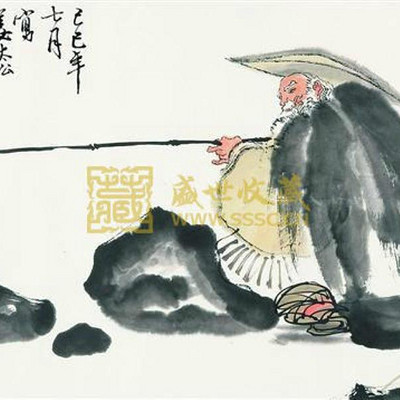 己巳年
七月
寫
姜太公
藏
盛世收藏
www.sssc.cn